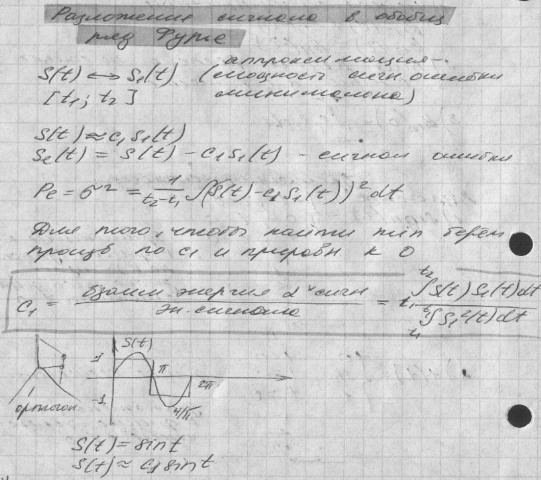 Разложение сигнала в обобщ
ряд Фурье
S(t) ↔ S₁(t) (аппроксимация -
[t₁; t₂] мощность сигн. ошибки
минимальна)
S(t) ≈ c₁ S₁(t)
Se(t) = S(t) - c₁S₁(t) - сигнал ошибки
Pe = σ² = 1/(t₂-t₁) ∫(S(t) - c₁ S₁(t))² dt
Для того, чтобы найти min берем
произв по c₁ и приравн к 0
c₁ = взаим. энергия 2ˣ сигн / эн. сигнала = ∫ₜ₁ᵗ² S(t) S₁(t) dt / ∫ₜ₁ᵗ² S₁²(t) dt
S(t)
1
π
2π
-1
4/π
ортогон
S(t) = sint
S(t) ≈ c₁ sint